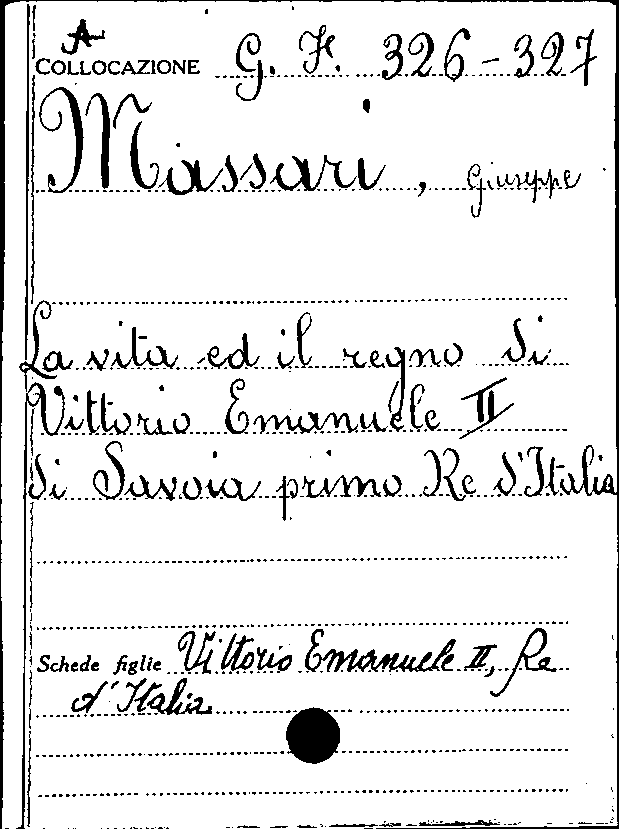 A
COLLOCAZIONE G. F. 326-327
Massari, Giuseppe
La vita ed il regno di
Vittorio Emanuele II
di Savoia primo Re d'Italia
Schede figlie Vittorio Emanuele II, Re
d'Italia.